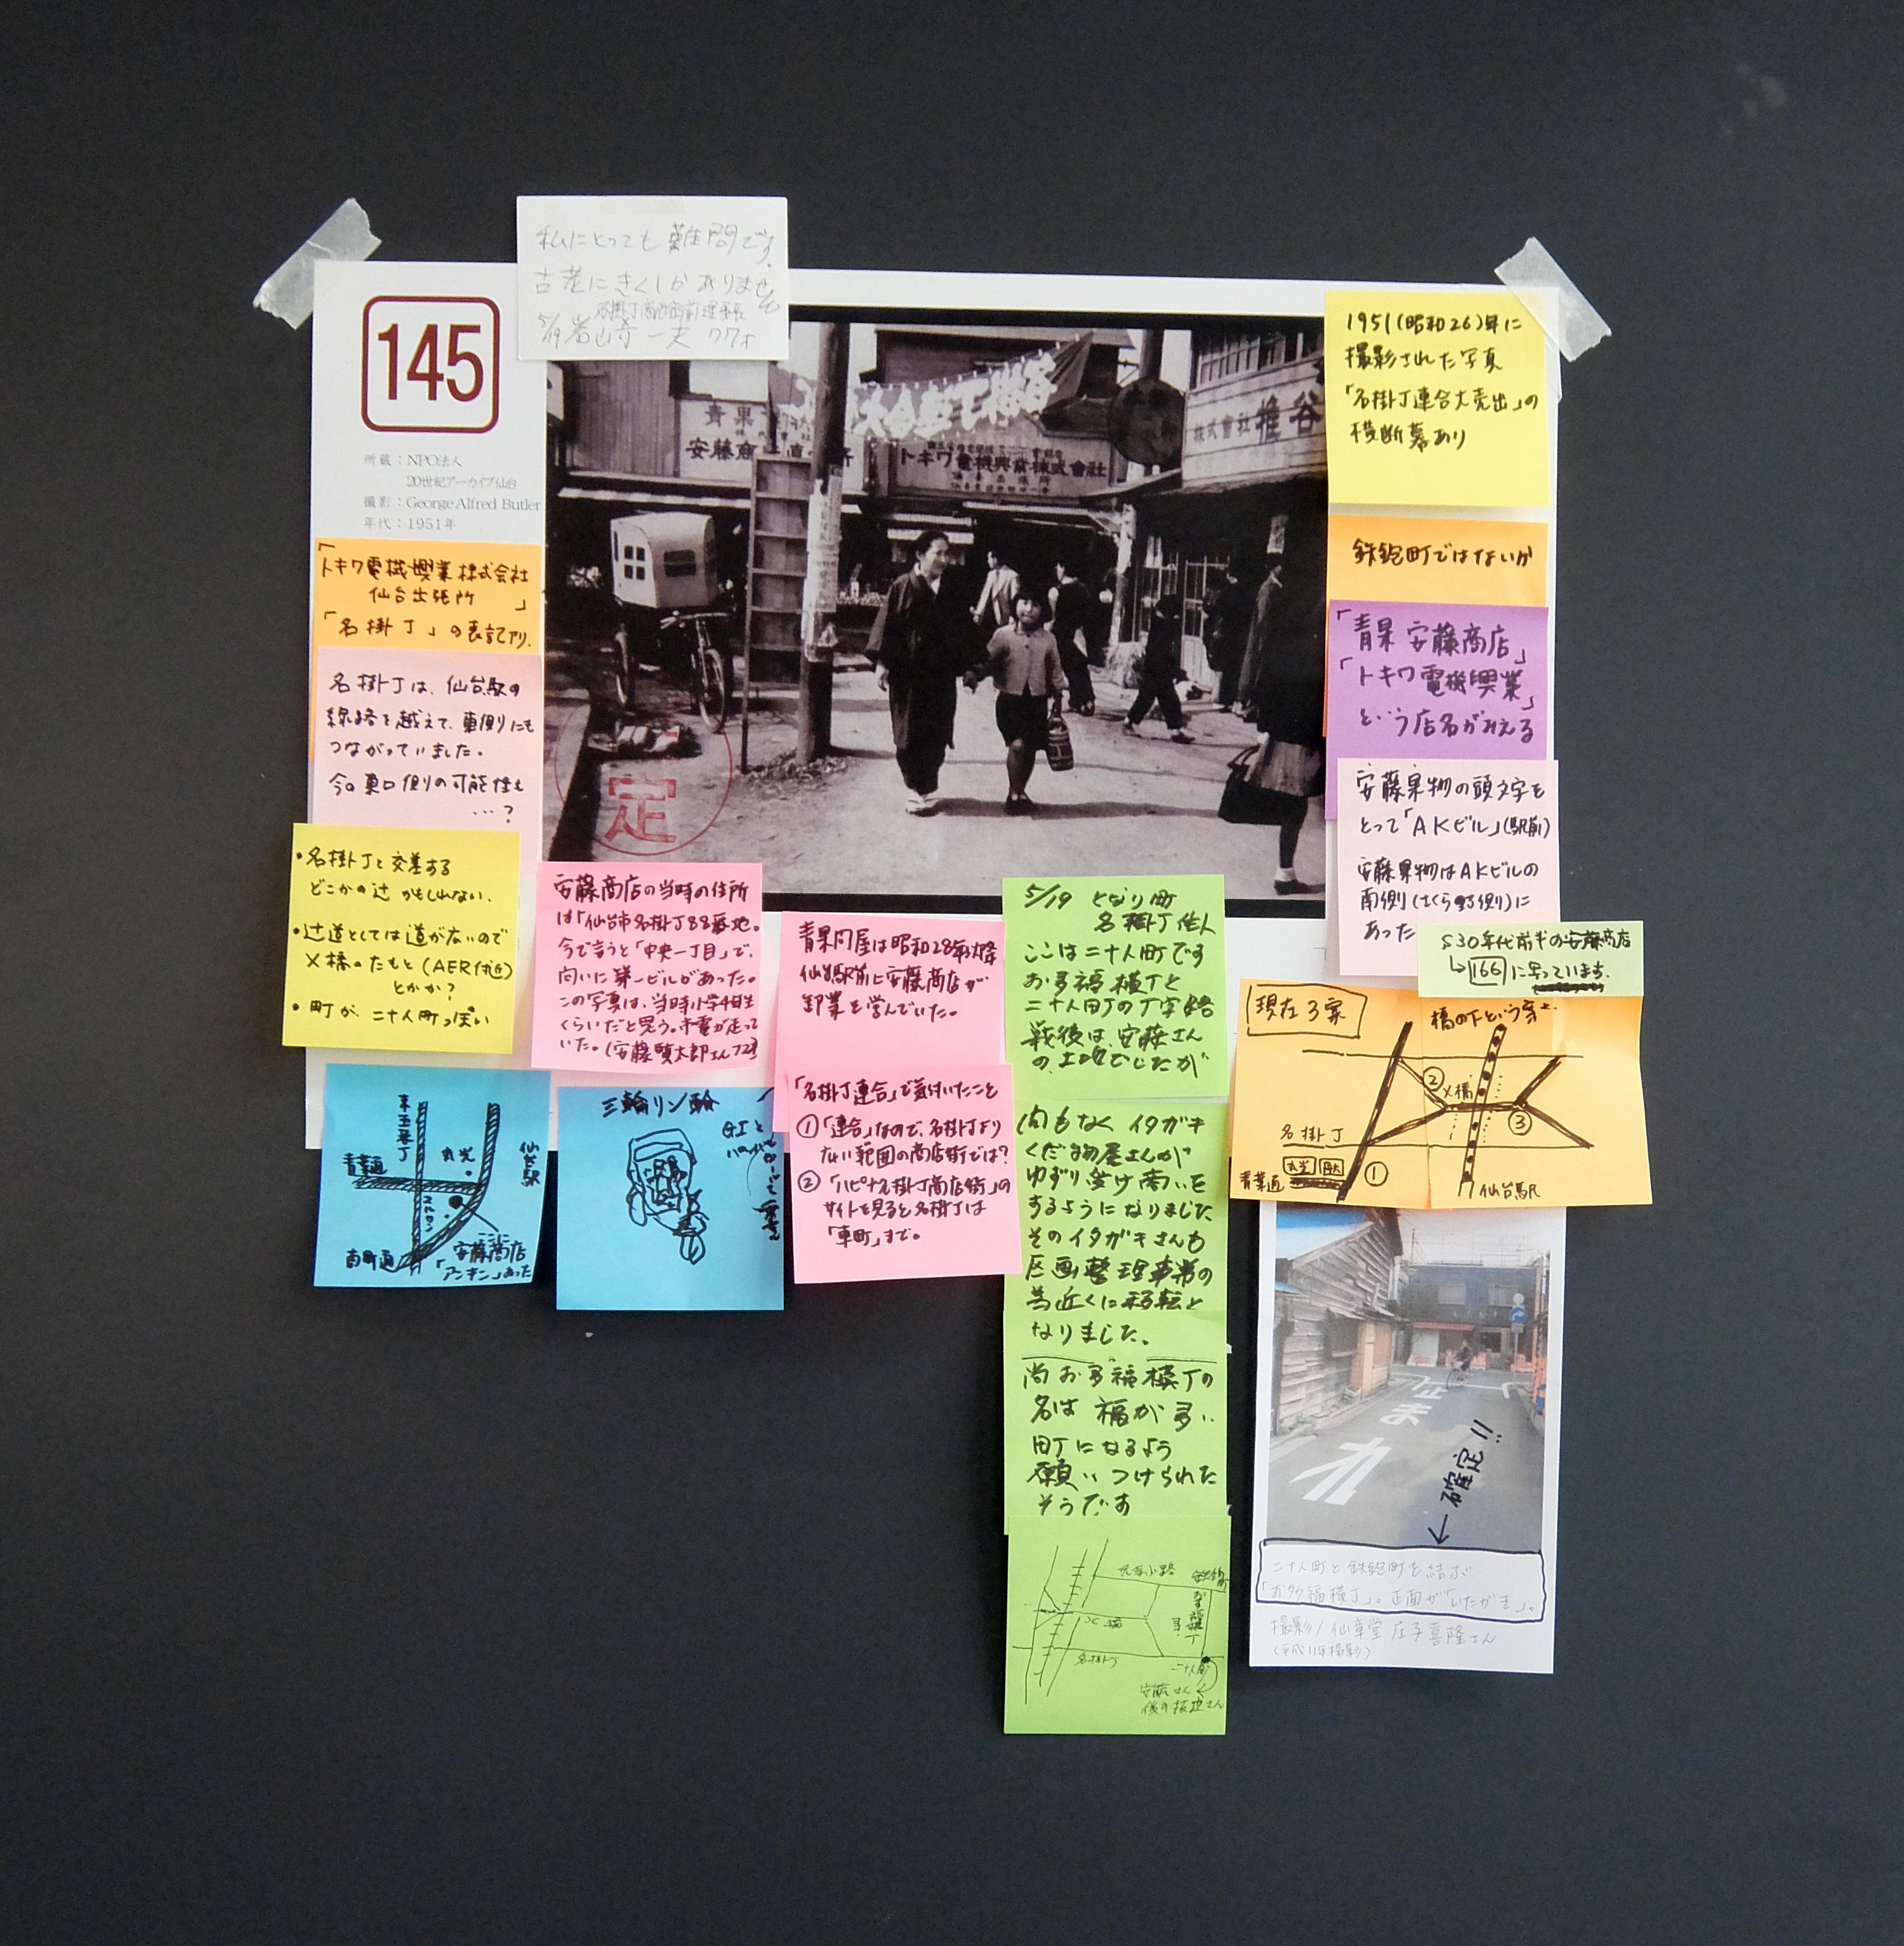 私にとっても難問です。
古老にきくしかありません
名掛丁商店街前理事長
5/19 岩崎一夫 77才
145
所蔵：NPO法人
20世紀アーカイブ仙台
撮影：George Alfred Butler
年代：1951年
「トキワ電機興業株式会社
仙台出張所」
「名掛丁」の表記アリ.
名掛丁は、仙台駅の
線路を越えて、東側にも
つながっていました。
今の東口側の可能性も
…?
・名掛丁と交差する
どこかの辻かもしれない.
・辻道としては道が広いので
X橋のたもと(AER付近)
とかか?
・町が、二十人町っぽい
青果
安藤商
直
所
トキワ電機興業株式會社
株式會社 椎谷
定
1951(昭和26)年に
撮影された写真
「名掛丁連合大売出」の
横断幕あり
鉄砲町ではないか
「青果 安藤商店」
「トキワ電機興業」
という店名がみえる
安藤果物の頭文字を
とって「AKビル」(駅前)
安藤果物はAKビルの
南側(さくら野側)に
あった
S30年代前半の安藤商店
166に写っています.
安藤商店の当時の住所
は「仙台市名掛丁88番地。
今で言うと「中央一丁目」で、
向いに第一ビルがあった。
この写真は、当時小学4年生
くらいだと思う。市電が走って
いた。(安藤 太郎さん72才)
青果問屋は昭和28年以降
仙台駅前に安藤商店が
卸業を営んでいた。
「名掛丁連合」で気付いたこと
①「連合」なので、名掛丁より
広い範囲の商店街では?
②「ハピナ名掛丁商店街」の
サイトを見ると名掛丁は
「車町」まで。
5/19 となり町
名掛丁住人
ここは二十人町です
お多福横丁と
二十人町の丁字路
戦後は、安藤さん
の土地でしたが
間もなく イタガキ
くだ物屋さんが
ゆずり受け商いを
するようになりました
そのイタガキさんも
区画整理事業の
為近くに移転と
なりました。
尚お多福横丁の
名は 福が多い
町になるよう
願いつけられた
そうです
X橋
名掛丁
二十人町
安藤さん
後の板垣さん
東五番丁
青葉通
丸光
仙台駅
南町通
安藤商店
「アンキン」あった
三輪リン輪
現在3案
橋の下という案も.
②
X橋
③
名掛丁
丸光
青葉通
①
仙台駅
止まれ
←確定!!
二十人町と鉄砲町を結ぶ
「お多福横丁」。正面が「いたがき」。
撮影/仙台堂 庄子喜隆さん
(平成11年撮影)